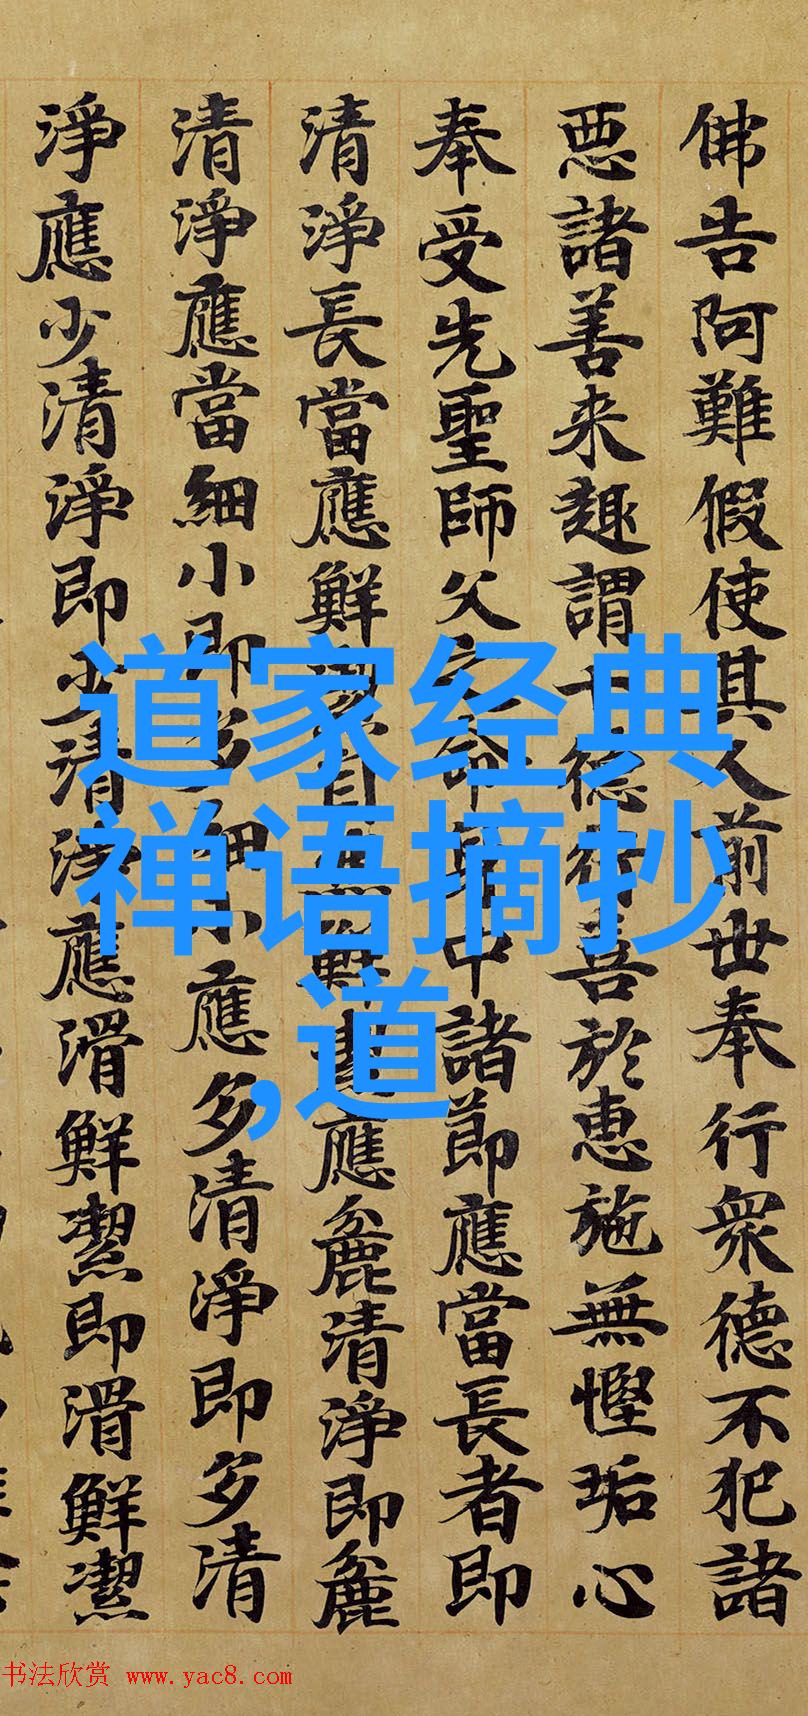 佛告阿難假使其人前世奉行眾德不犯諸
惡諸善来趣謂德行喜於惠施無慳垢心
奉受先聖師父之命中諸節應當長者即
清淨長當應鮮自鮮應麁清淨即麁
清淨應當細小即細小應多清淨即多清
淨應少清淨即少清淨應滑鮮潔即滑鮮潔
道家经典
禅语摘抄
,道
书法欣赏 www.yac8.com